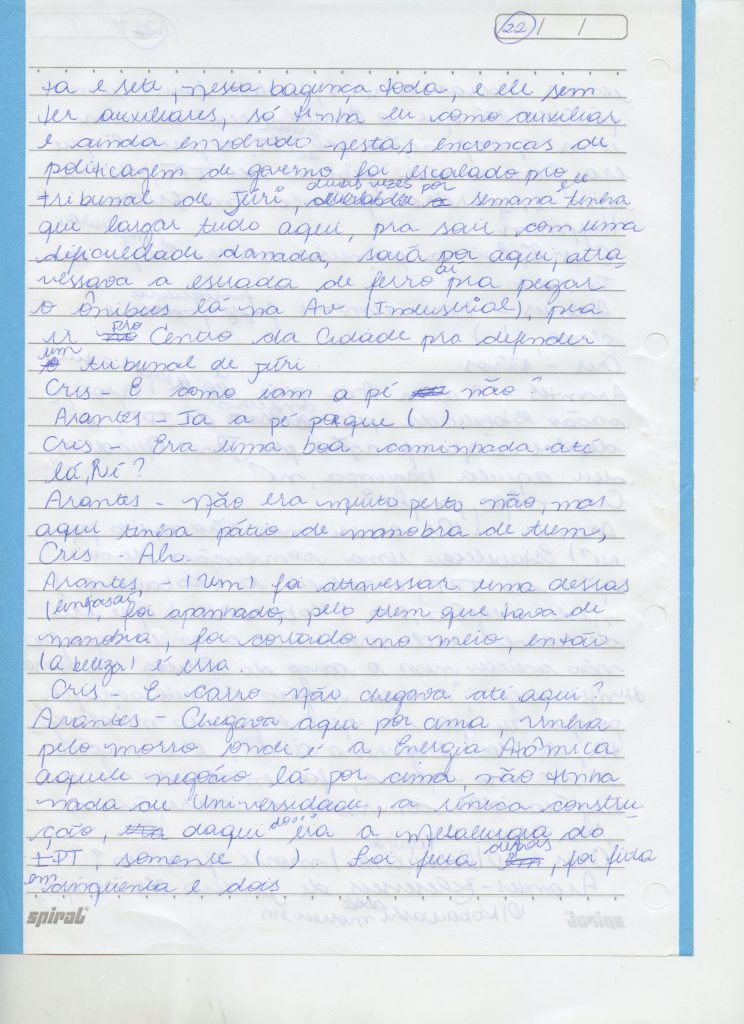 22 / /
ta e sete, nesta bagunça toda, e ele sem
ter auxiliares, só tinha eu como auxiliar
e ainda envolvido nestas encrencas de
politicagem de governo foi escalado pro
tribunal de júri, duas vezes por semana ele tinha
que largar tudo aqui, pra sair, com uma
dificuldade danada, saía por aqui, atra-
vessava a estrada de ferro aí pra pegar
o ônibus lá na Av (Industrial), pra
ir pro Centro da Cidade pra defender
um tribunal de júri.
Cris - E como iam a pé não?
Arantes - Ia a pé porque ( ).
Cris - Era uma boa caminhada até
lá, né?
Arantes - não era muito perto não, mas
aqui tinha pátio de manobra de trem,
Cris - Ah.
Arantes, - (um) foi atravessar uma dessas
foi apanhado, pelo trem que tava de
manobra, foi cortado no meio, então
(a beleza) é essa.
Cris - E carro não chegava até aqui?
Arantes - Chegava aqui por cima, vinha
pelo morro onde é a Energia Atômica
aquele negócio lá por cima não tinha
nada de Universidade, a única constru-
ção, daqui era a Metalurgia do
IPT, somente ( ) foi feita depois, foi feita
em cinqüenta e dois
spiral